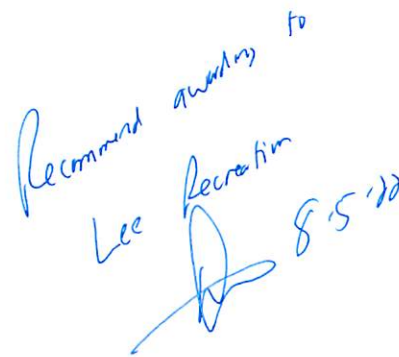 Recommend awarding to
Lee Recreation
8.5.22